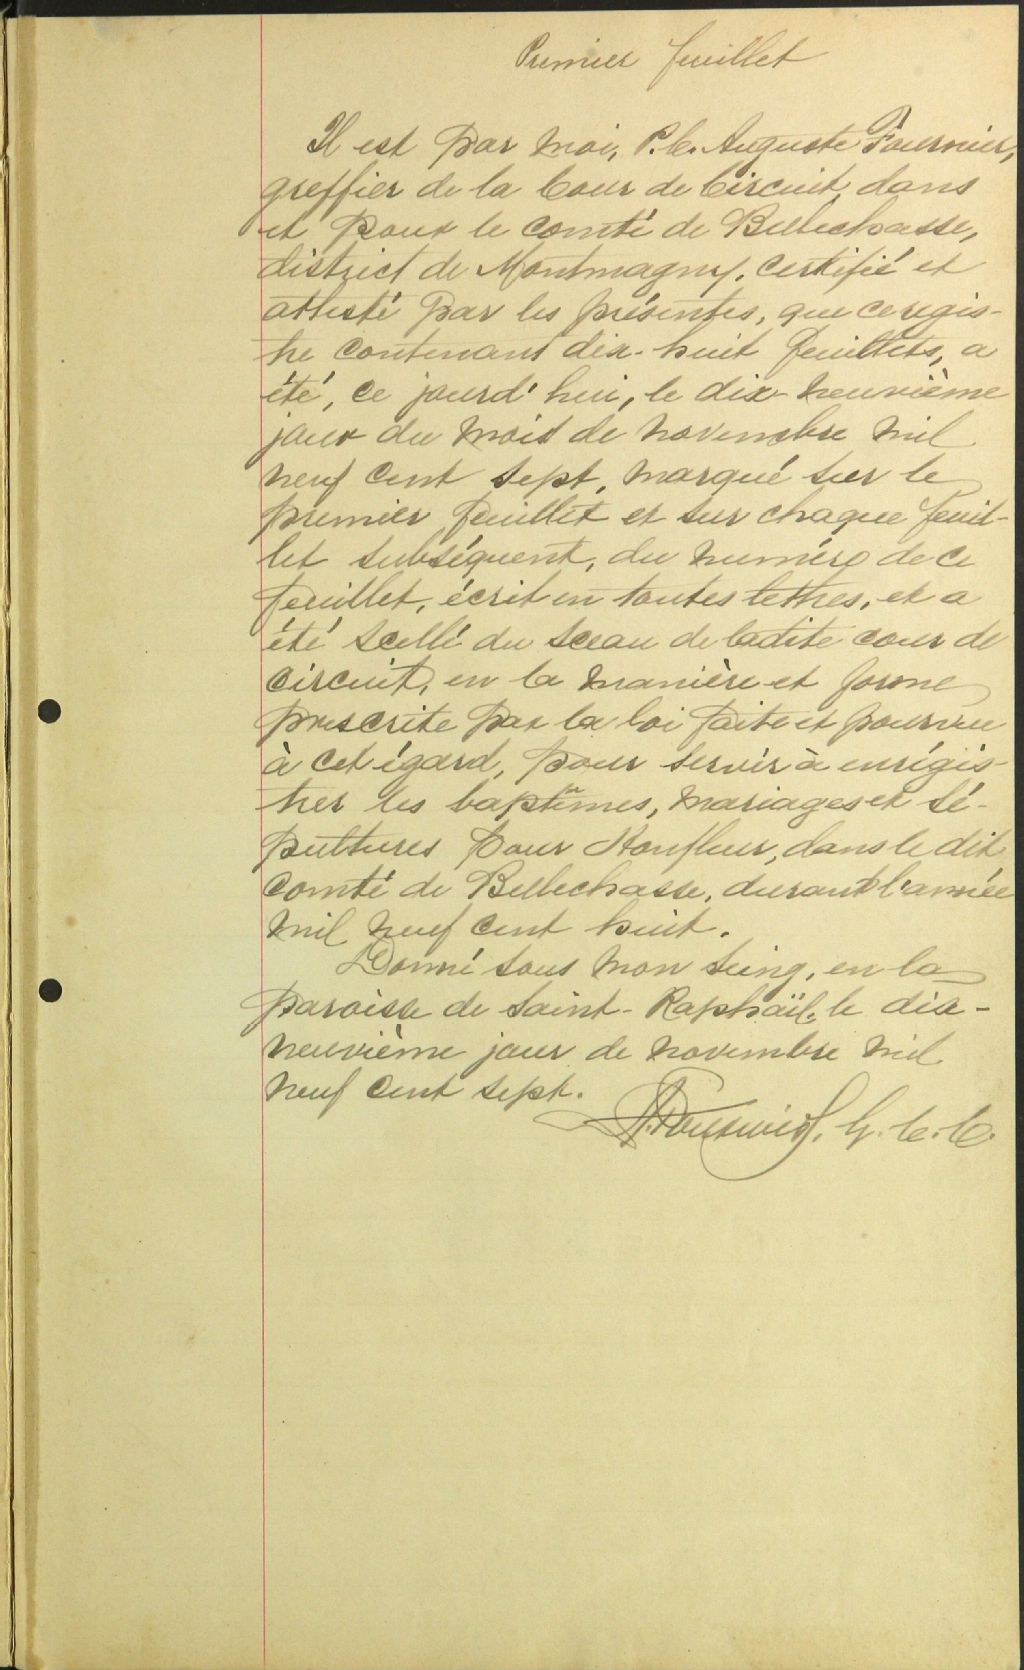 Premier feuillet
Il est par moi, P. C. Auguste Fournier,
greffier de la Cour de Circuit, dans
et pour le comté de Bellechasse,
district de Montmagny, certifié et
attesté par les présentes, que ce regis-
tre contenant dix-huit feuillets, a
été, ce jourd'hui, le dix-neuvième
jour du mois de novembre mil
neuf cent sept, marqué sur le
premier feuillet et sur chaque feuil-
let subséquent, du numéro de ce
feuillet, écrit en toutes lettres, et a
été scellé du sceau de ladite cour de
circuit, en la manière et forme
prescrite par la loi faite et pourvue
à cet égard, pour servir à enrégis-
trer les baptêmes, mariages et sé-
pultures pour Honfleur, dans le dit
comté de Bellechasse, durant l'année
mil neuf cent huit.
Donné sous mon seing, en la
paroisse de Saint-Raphaël, le dix-
neuvième jour de novembre mil
neuf cent sept.
A. Fournier, G. C. C.